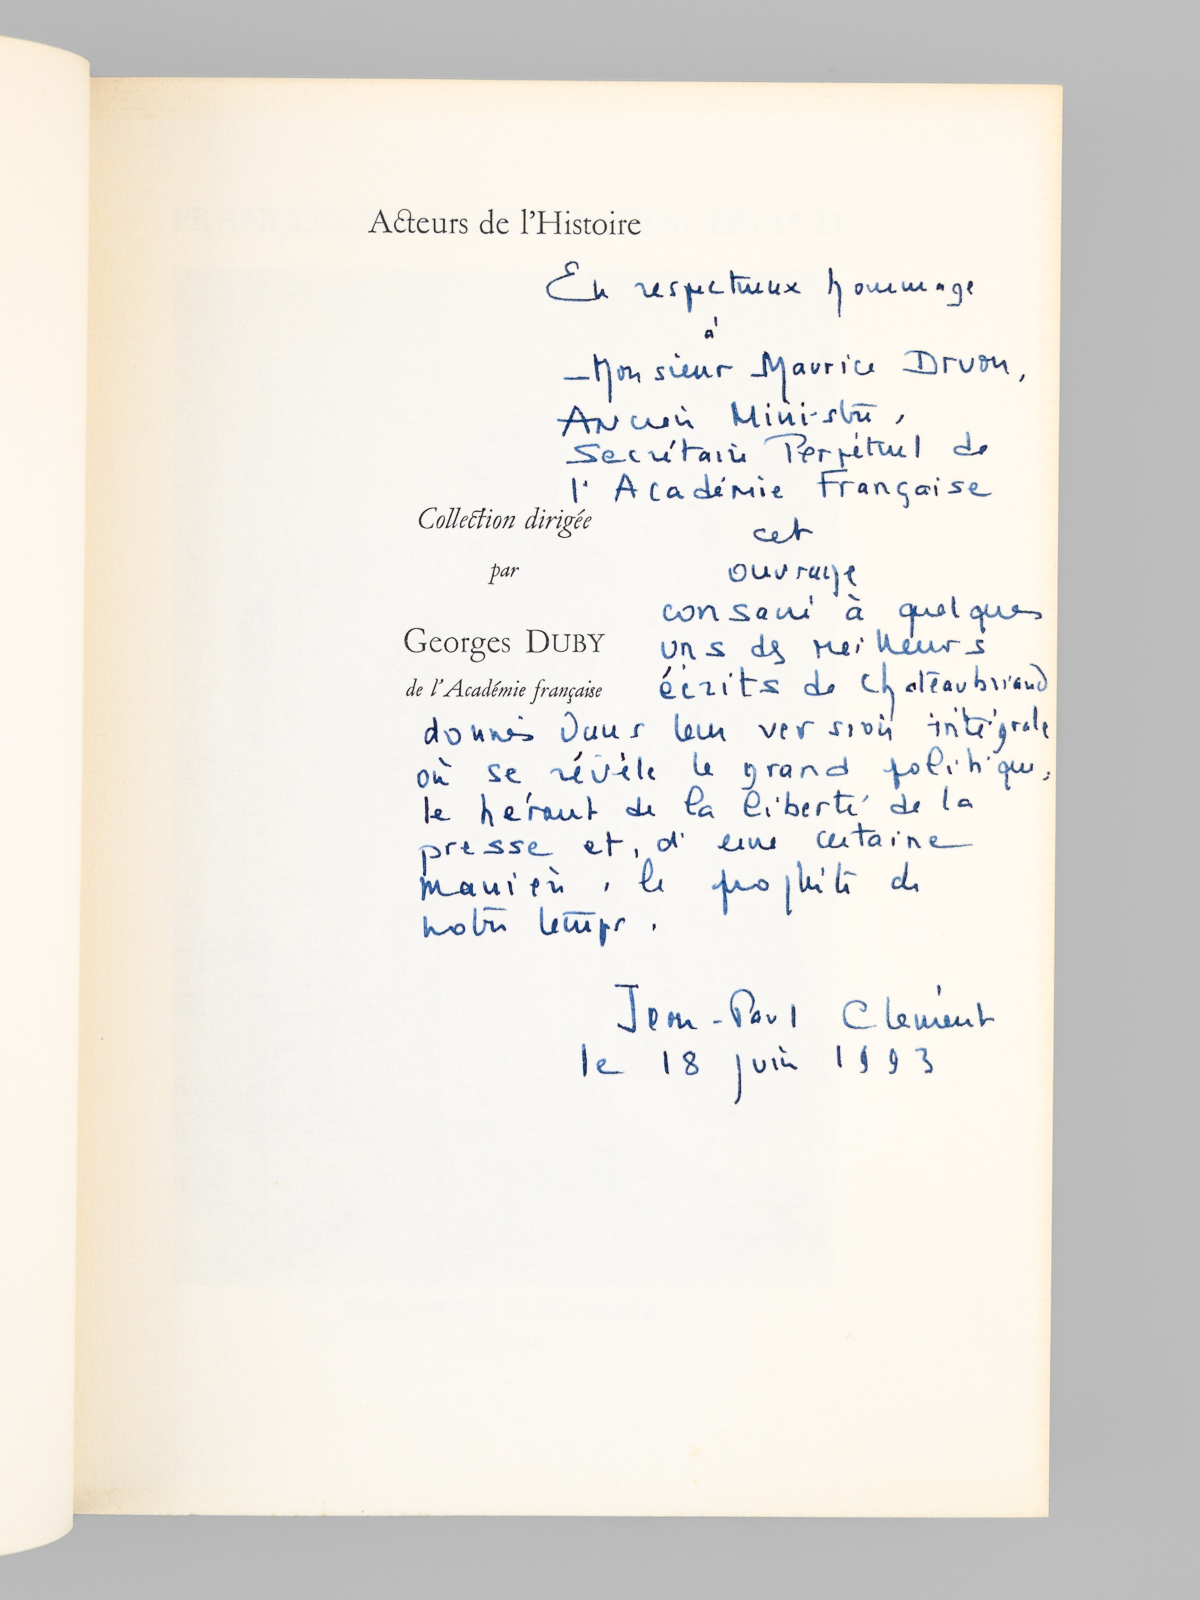 Acteurs de l'Histoire
En respectueux hommage
à
Monsieur Maurice Druon,
Ancien Ministre,
Secrétaire Perpétuel de
l'Académie Française
Collection dirigée
par
Georges DUBY
de l'Académie française
cet
ouvrage
consacré à quelques
uns des meilleurs
écrits de Chateaubriand
donnés dans leur version intégrale
où se révèle le grand politique,
le héraut de la liberté de la
presse et, d'une certaine
manière, le prophète de
notre temps.
Jean-Paul Clément
le 18 juin 1993